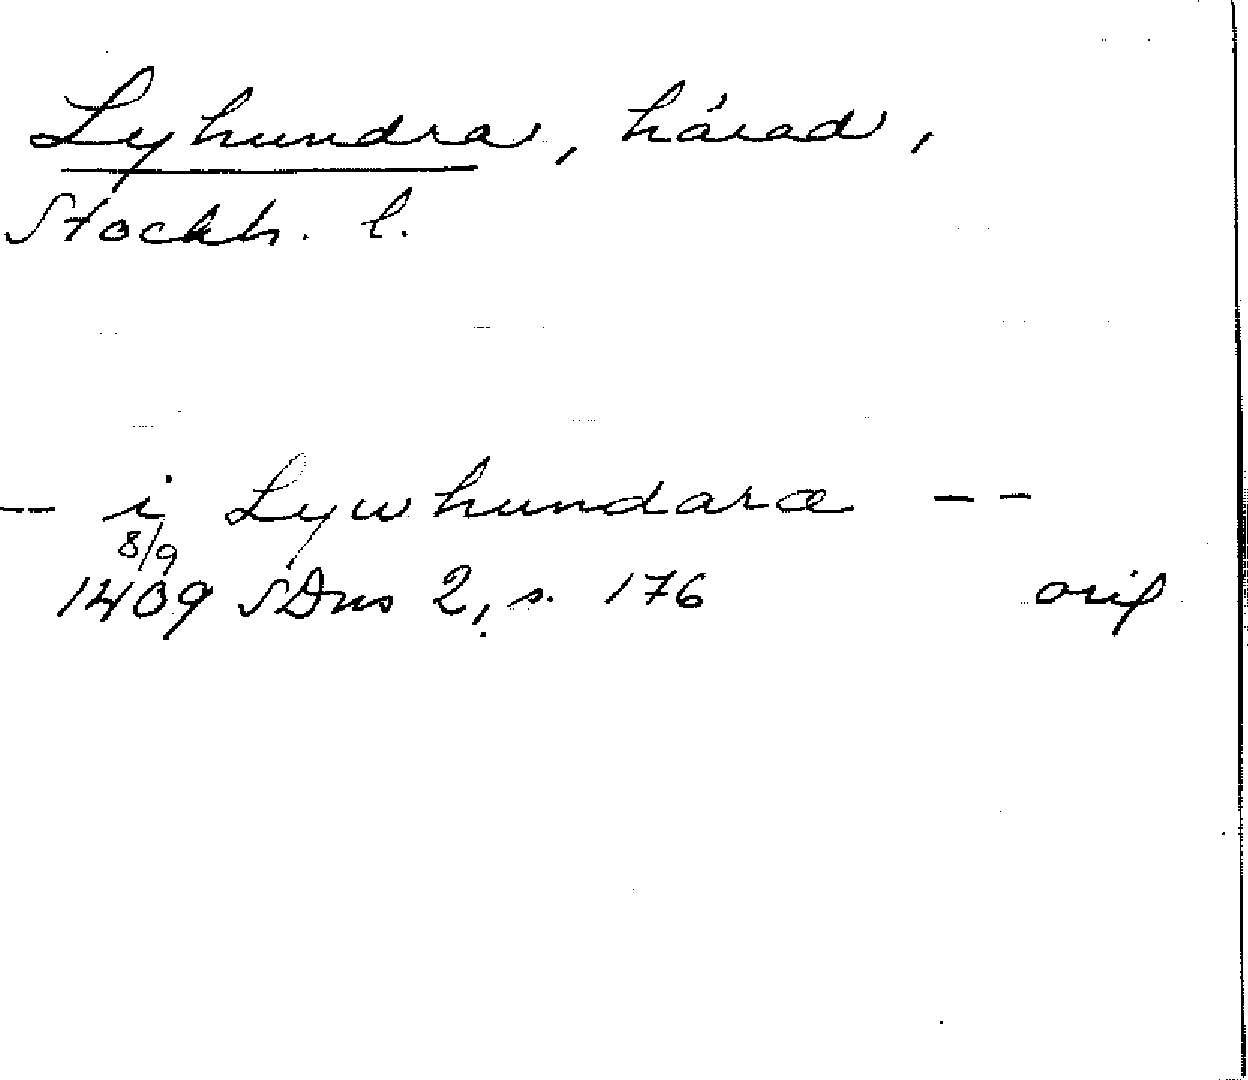 Lyhundra, härad,
Stockh. l.
-- i Lywhundaræ --
8/9
1409 SDns 2, s. 176 orig